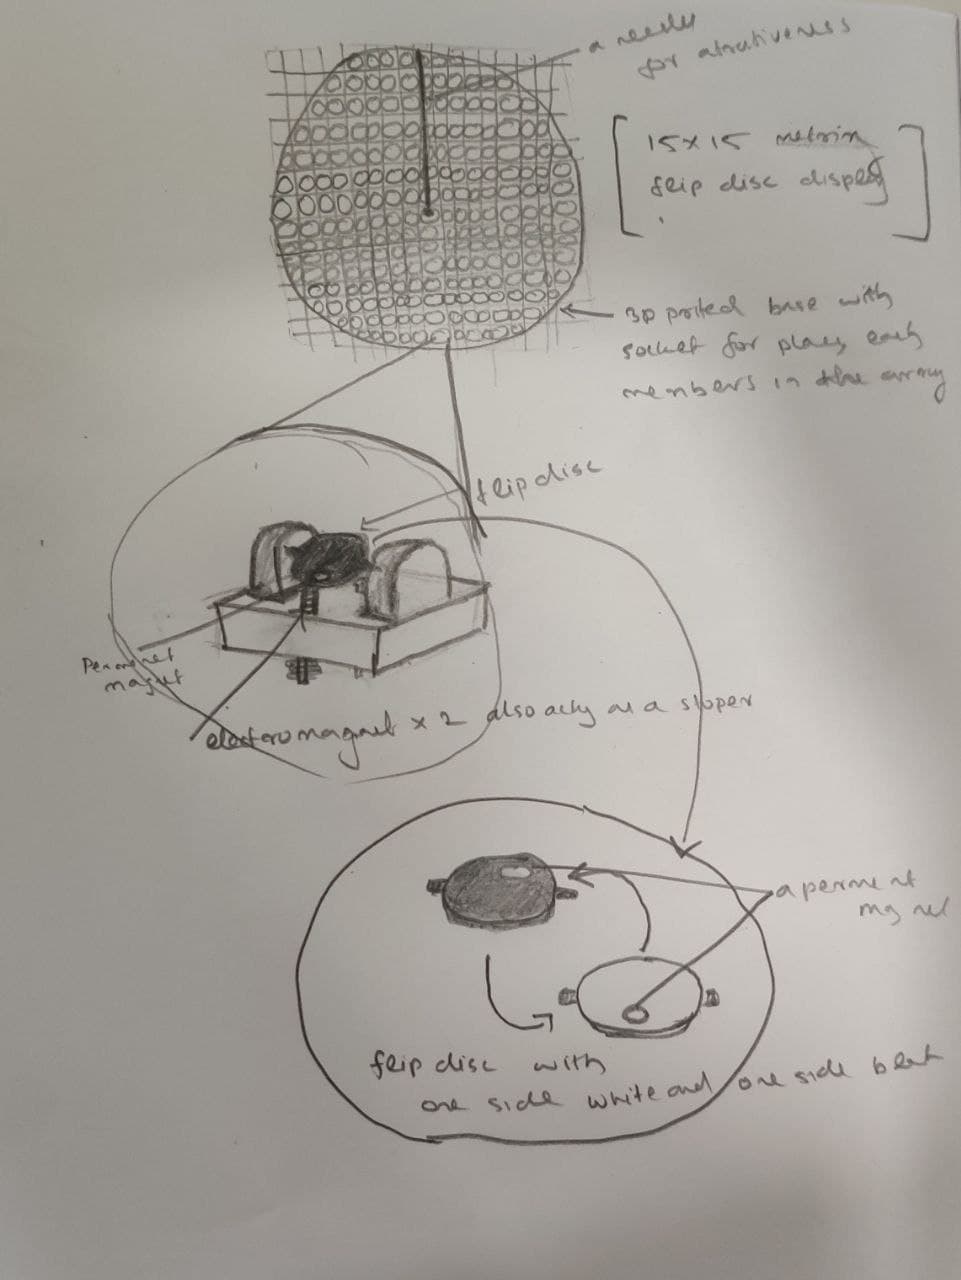 a needle
for atrativeness
15×15 metrix
flip disc display
3D prited base with
socket for place each
members in the array
flip disc
Permenet
magnet
electromagnet × 2 also actig as a stoper
a perment
mgnet
flip disc with
one side white and one side black